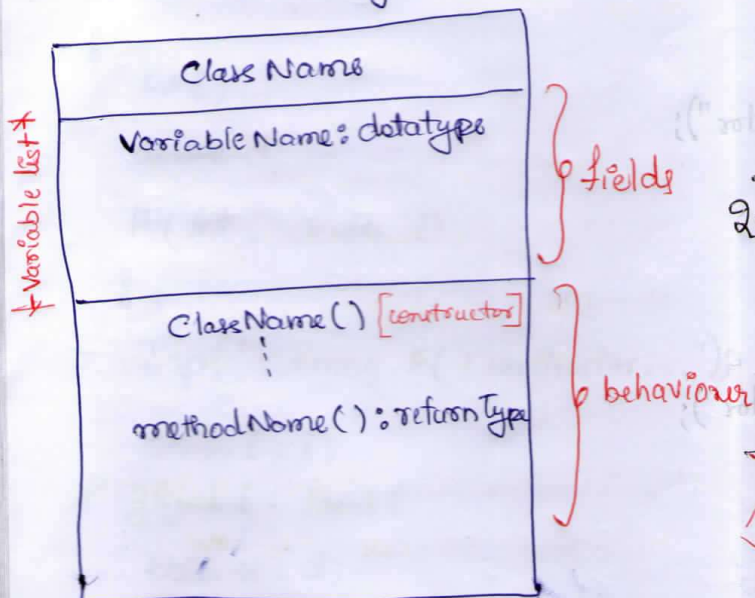 Class Name
Variable Name: datatype
Variable list
fields
2
ClassName() [constructor]
methodName(): returnType
behaviour